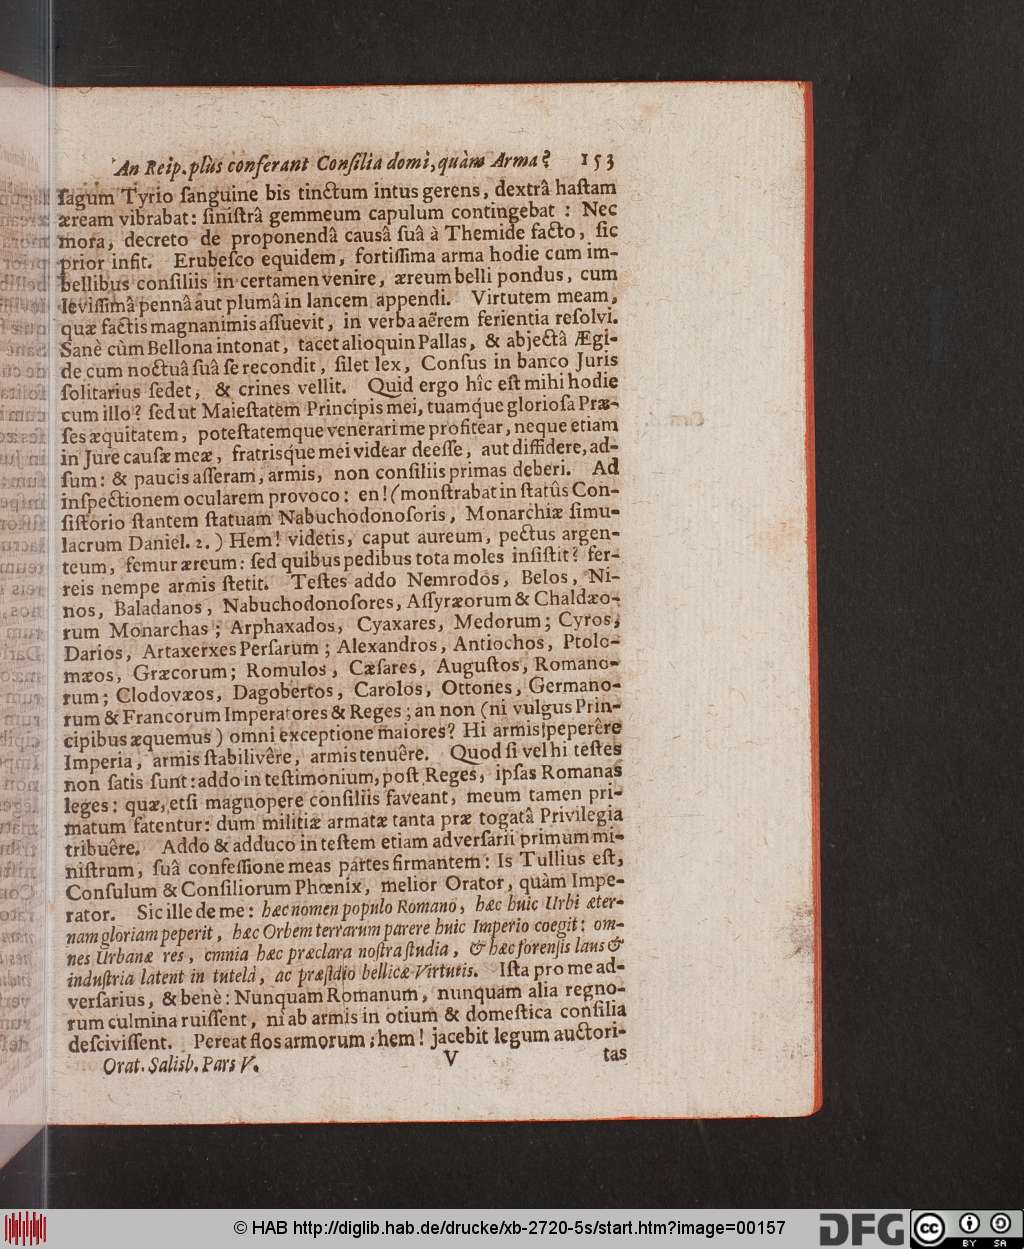 An Reip. plùs conferant Conſilia domi, quàm Arma? 153
ſagum Tyrio ſanguine bis tinctum intus gerens, dextrâ haſtam
æream vibrabat: ſiniſtrâ gemmeum capulum contingebat : Nec
mora, decreto de proponendâ causâ ſuâ à Themide facto, ſic
prior infit. Erubeſco equidem, fortiſſima arma hodie cum im-
bellibus conſiliis in certamen venire, æreum belli pondus, cum
leviſſimâ pennâ aut plumâ in lancem appendi. Virtutem meam,
quæ factis magnanimis aſſuevit, in verba aërem ferientia reſolvi.
Sanè cùm Bellona intonat, tacet alioquin Pallas, & abjectâ Ægi-
de cum noctuâ ſuâ ſe recondit, ſilet lex, Conſus in banco Juris
ſolitarius ſedet, & crines vellit. Quid ergo hîc eſt mihi hodie
cum illo? ſed ut Maieſtatem Principis mei, tuamq́ue glorioſa Præ-
ſes æquitatem, poteſtatemque venerari me profitear, neque etiam
in Jure cauſæ meæ, fratrisq́ue mei videar deeſſe, aut diffidere, ad-
ſum: & paucis aſſeram, armis, non conſiliis primas deberi. Ad
inſpectionem ocularem provoco: en! (monſtrabat in ſtatûs Con-
ſiſtorio ſtantem ſtatuam Nabuchodonoſoris, Monarchiæ ſimu-
lacrum Daniel. 2. ) Hem! videtis, caput aureum, pectus argen-
teum, femur æreum: ſed quibus pedibus tota moles inſiſtit? fer-
reis nempe armis ſtetit. Teſtes addo Nemrodos, Belos, Ni-
nos, Baladanos, Nabuchodonoſores, Aſſyræorum & Chaldæo-
rum Monarchas; Arphaxados, Cyaxares, Medorum; Cyros,
Darios, Artaxerxes Perſarum; Alexandros, Antiochos, Ptolo-
mæos, Græcorum; Romulos, Cæſares, Auguſtos, Romano-
rum; Clodovæos, Dagobertos, Carolos, Ottones, Germano-
rum & Francorum Imperatores & Reges; an non (ni vulgus Prin-
cipibus æquemus) omni exceptione maiores? Hi armis peperêre
Imperia, armis ſtabilivêre, armis tenuêre. Quod ſi vel hi teſtes
non ſatis ſunt: addo in teſtimonium, poſt Reges, ipſas Romanas
leges: quæ, etſi magnopere conſiliis faveant, meum tamen pri-
matum fatentur: dum militiæ armatæ tanta præ togatâ Privilegia
tribuêre. Addo & adduco in teſtem etiam adverſarii primum mi-
niſtrum, ſuâ confeſſione meas partes firmantem: Is Tullius eſt,
Conſulum & Conſiliorum Phœnix, melior Orator, quàm Impe-
rator. Sic ille de me: hæc nomen populo Romano, hæc huic Urbi æter-
nam gloriam peperit, hæc Orbem terrarum parere huic Imperio coegit: om-
nes Urbanæ res, omnia hæc præclara noſtra ſtudia, & hæc forenſis laus &
induſtria latent in tutelâ, ac præſidio bellicæ Virtutis. Iſta pro me ad-
verſarius, & benè: Nunquam Romanum, nunquam alia regno-
rum culmina ruiſſent, ni ab armis in otium & domeſtica conſilia
deſciviſſent. Pereat flos armorum; hem! jacebit legum auctori-
Orat. Salisb. Pars V. V tas
© HAB http://diglib.hab.de/drucke/xb-2720-5s/start.htm?image=00157
DFG
cc BY SA